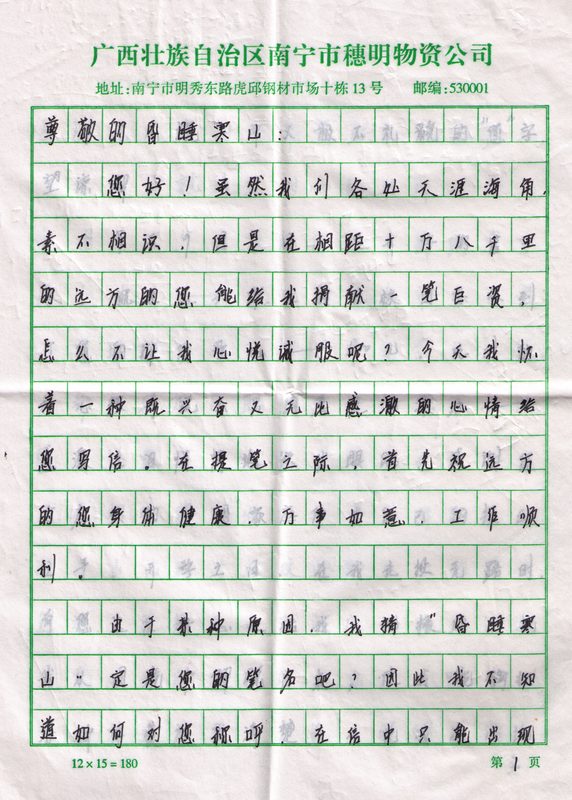 广西壮族自治区南宁市穗明物资公司
地址:南宁市明秀东路虎邱钢材市场十栋13号 邮编:530001
尊敬的昏睡寒山：
您好！虽然我们各处天涯海角，
素不相识，但是在相距十万八千里
的远方的您能给我捐献一笔巨资，
怎么不让我心悦诚服呢？今天我怀
着一种既兴奋又无比感激的心情给
您写信。在提笔之际，首先祝远方
的您身体健康，万事如意，工作顺
利。
由于某种原因，我猜"昏睡寒
山"一定是您的笔名吧？因此我不知
道如何对您称呼？在信中只能出现
12×15=180 第1页